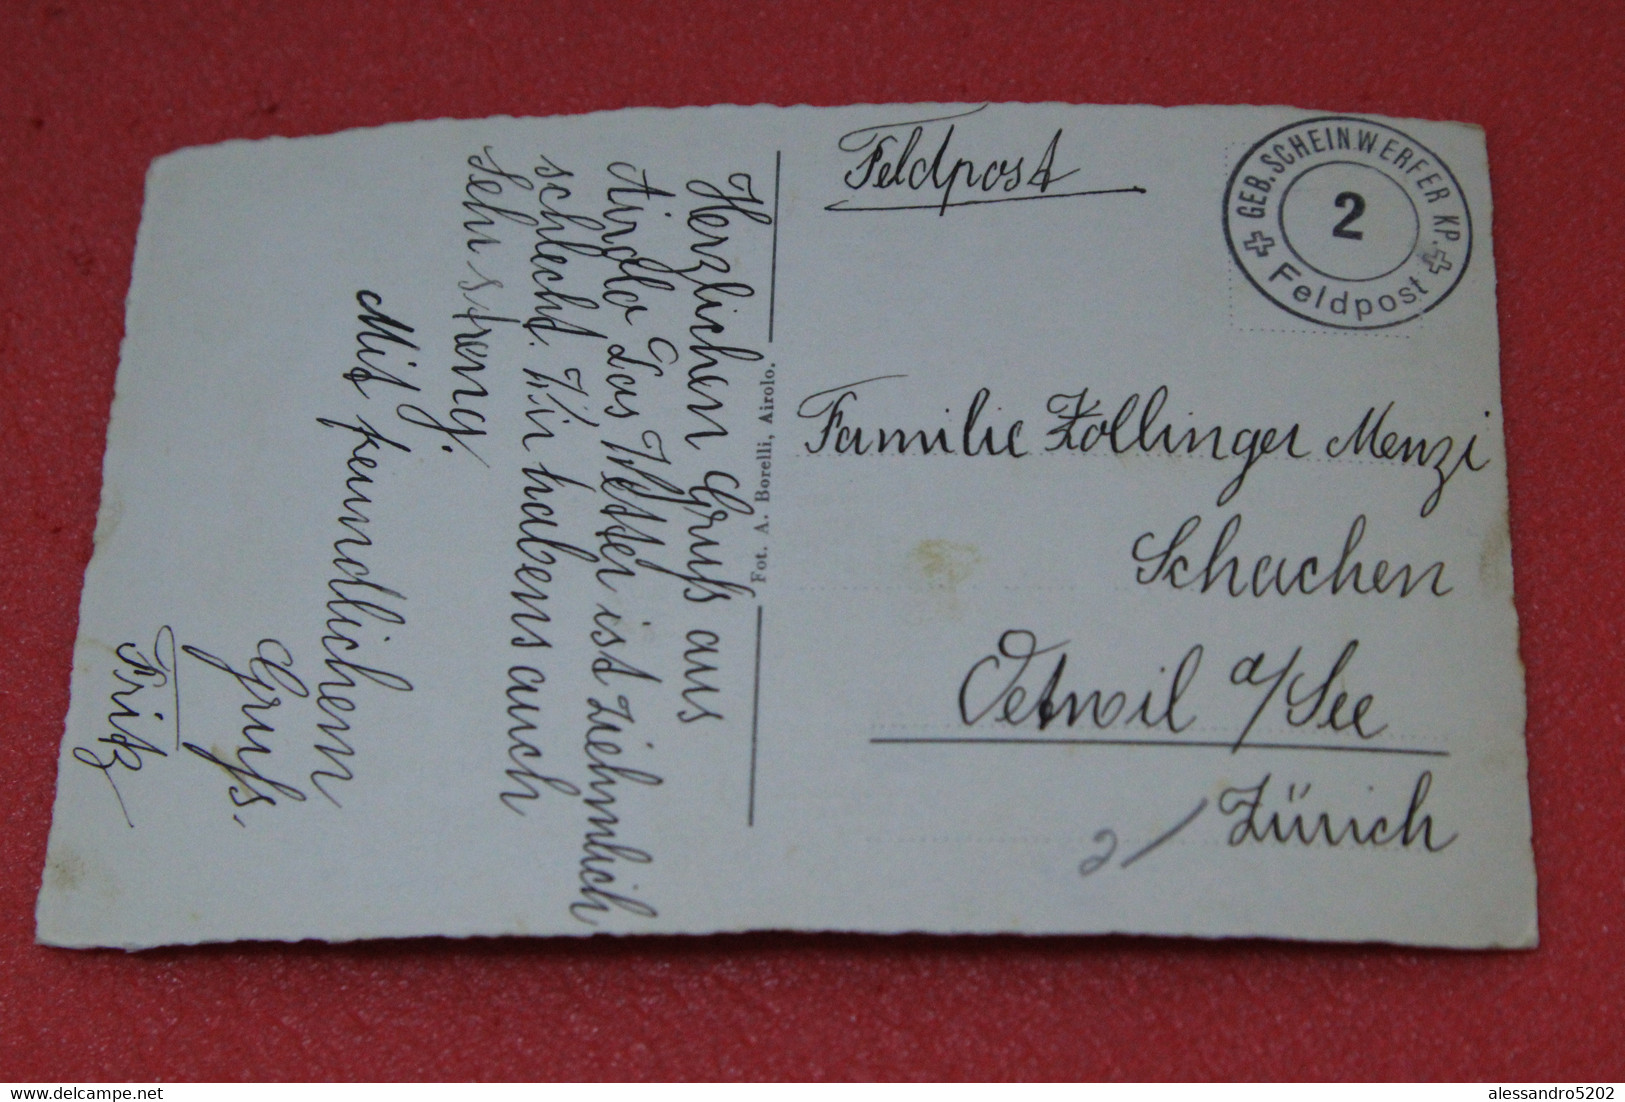 Herzlichen Gruss aus
Airolo Das Wetter ist ziehmlich
schlecht. Wir habens auch
Sehr streng.
Mit freundlichem
Gruss.
Fritz
Fot. A. Borelli, Airolo.
Feldpost
GEB. SCHEINWERFER KP.
2
Feldpost
Familie Zollinger Menzi
Schachen
Oetwil a/See
Zürich
2/
alessandro5202